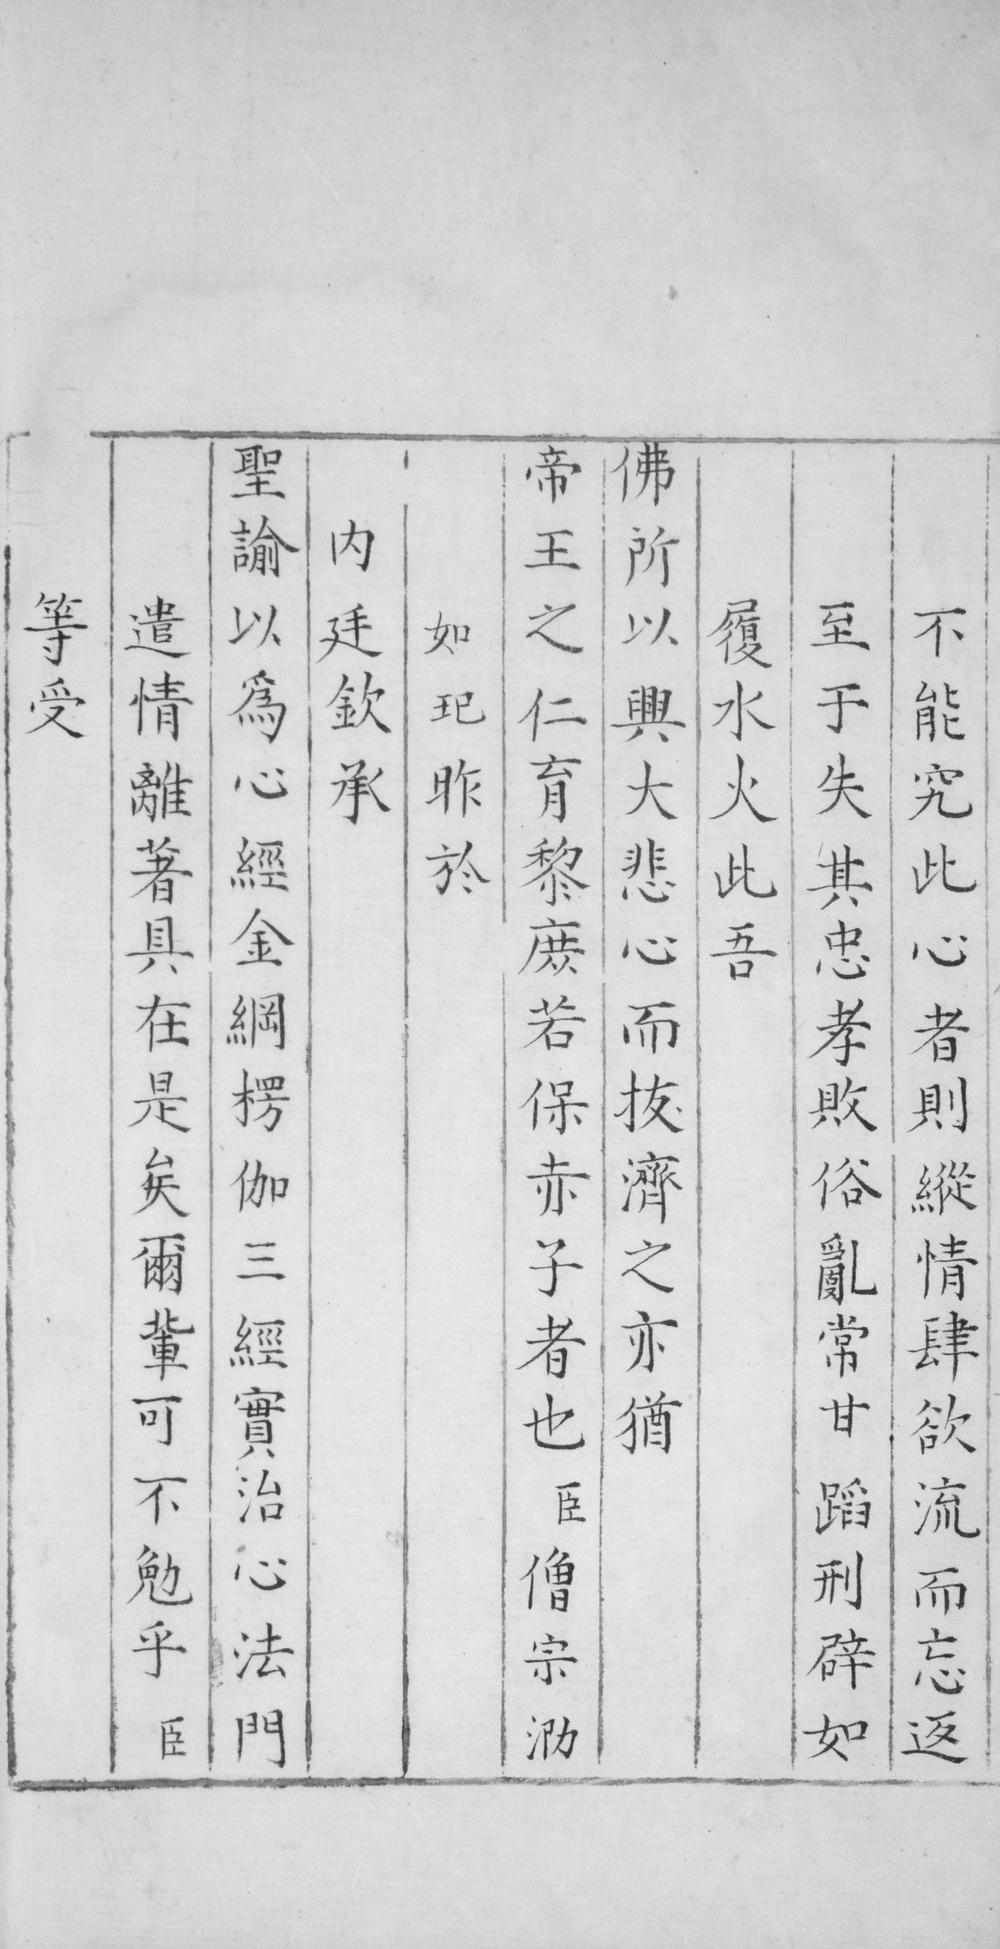 不能究此心者則縱情肆欲流而忘返
至于失其忠孝敗俗亂常甘蹈刑辟如
履水火此吾
佛所以興大悲心而拔濟之亦猶
帝王之仁育黎庶若保赤子者也臣僧宗泐
如玘昨於
内廷欽承
聖諭以爲心經金綱楞伽三經實治心法門
遣情離著具在是矣爾輩可不勉乎臣
等受